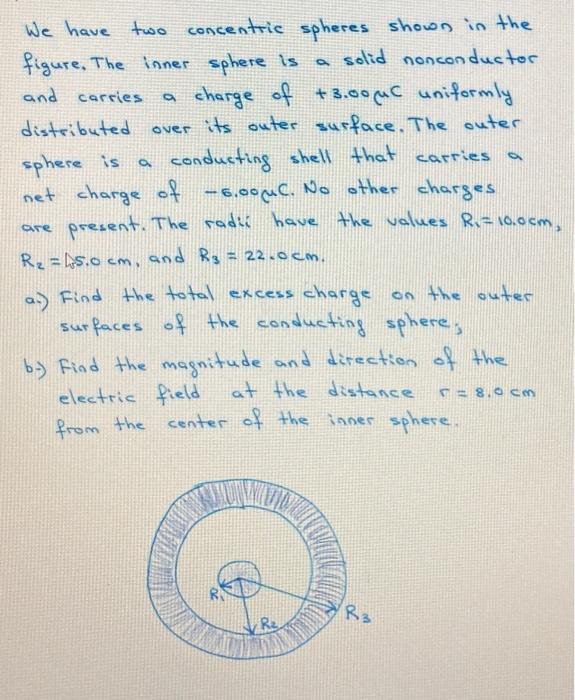 We have two concentric spheres shown in the
figure. The inner sphere is a solid nonconductor
and carries a charge of +3.00 μC uniformly
distributed over its outer surface. The outer
sphere is a conducting shell that carries a
net charge of -6.00 μC. No other charges
are present. The radii have the values R₁ = 10.0cm,
R₂ = 15.0 cm, and R₃ = 22.0 cm.
a.) Find the total excess charge on the outer
surfaces of the conducting sphere;
b-) Find the magnitude and direction of the
electric field at the distance r = 8.0 cm
from the center of the inner sphere.
R₁
R₂
R₃